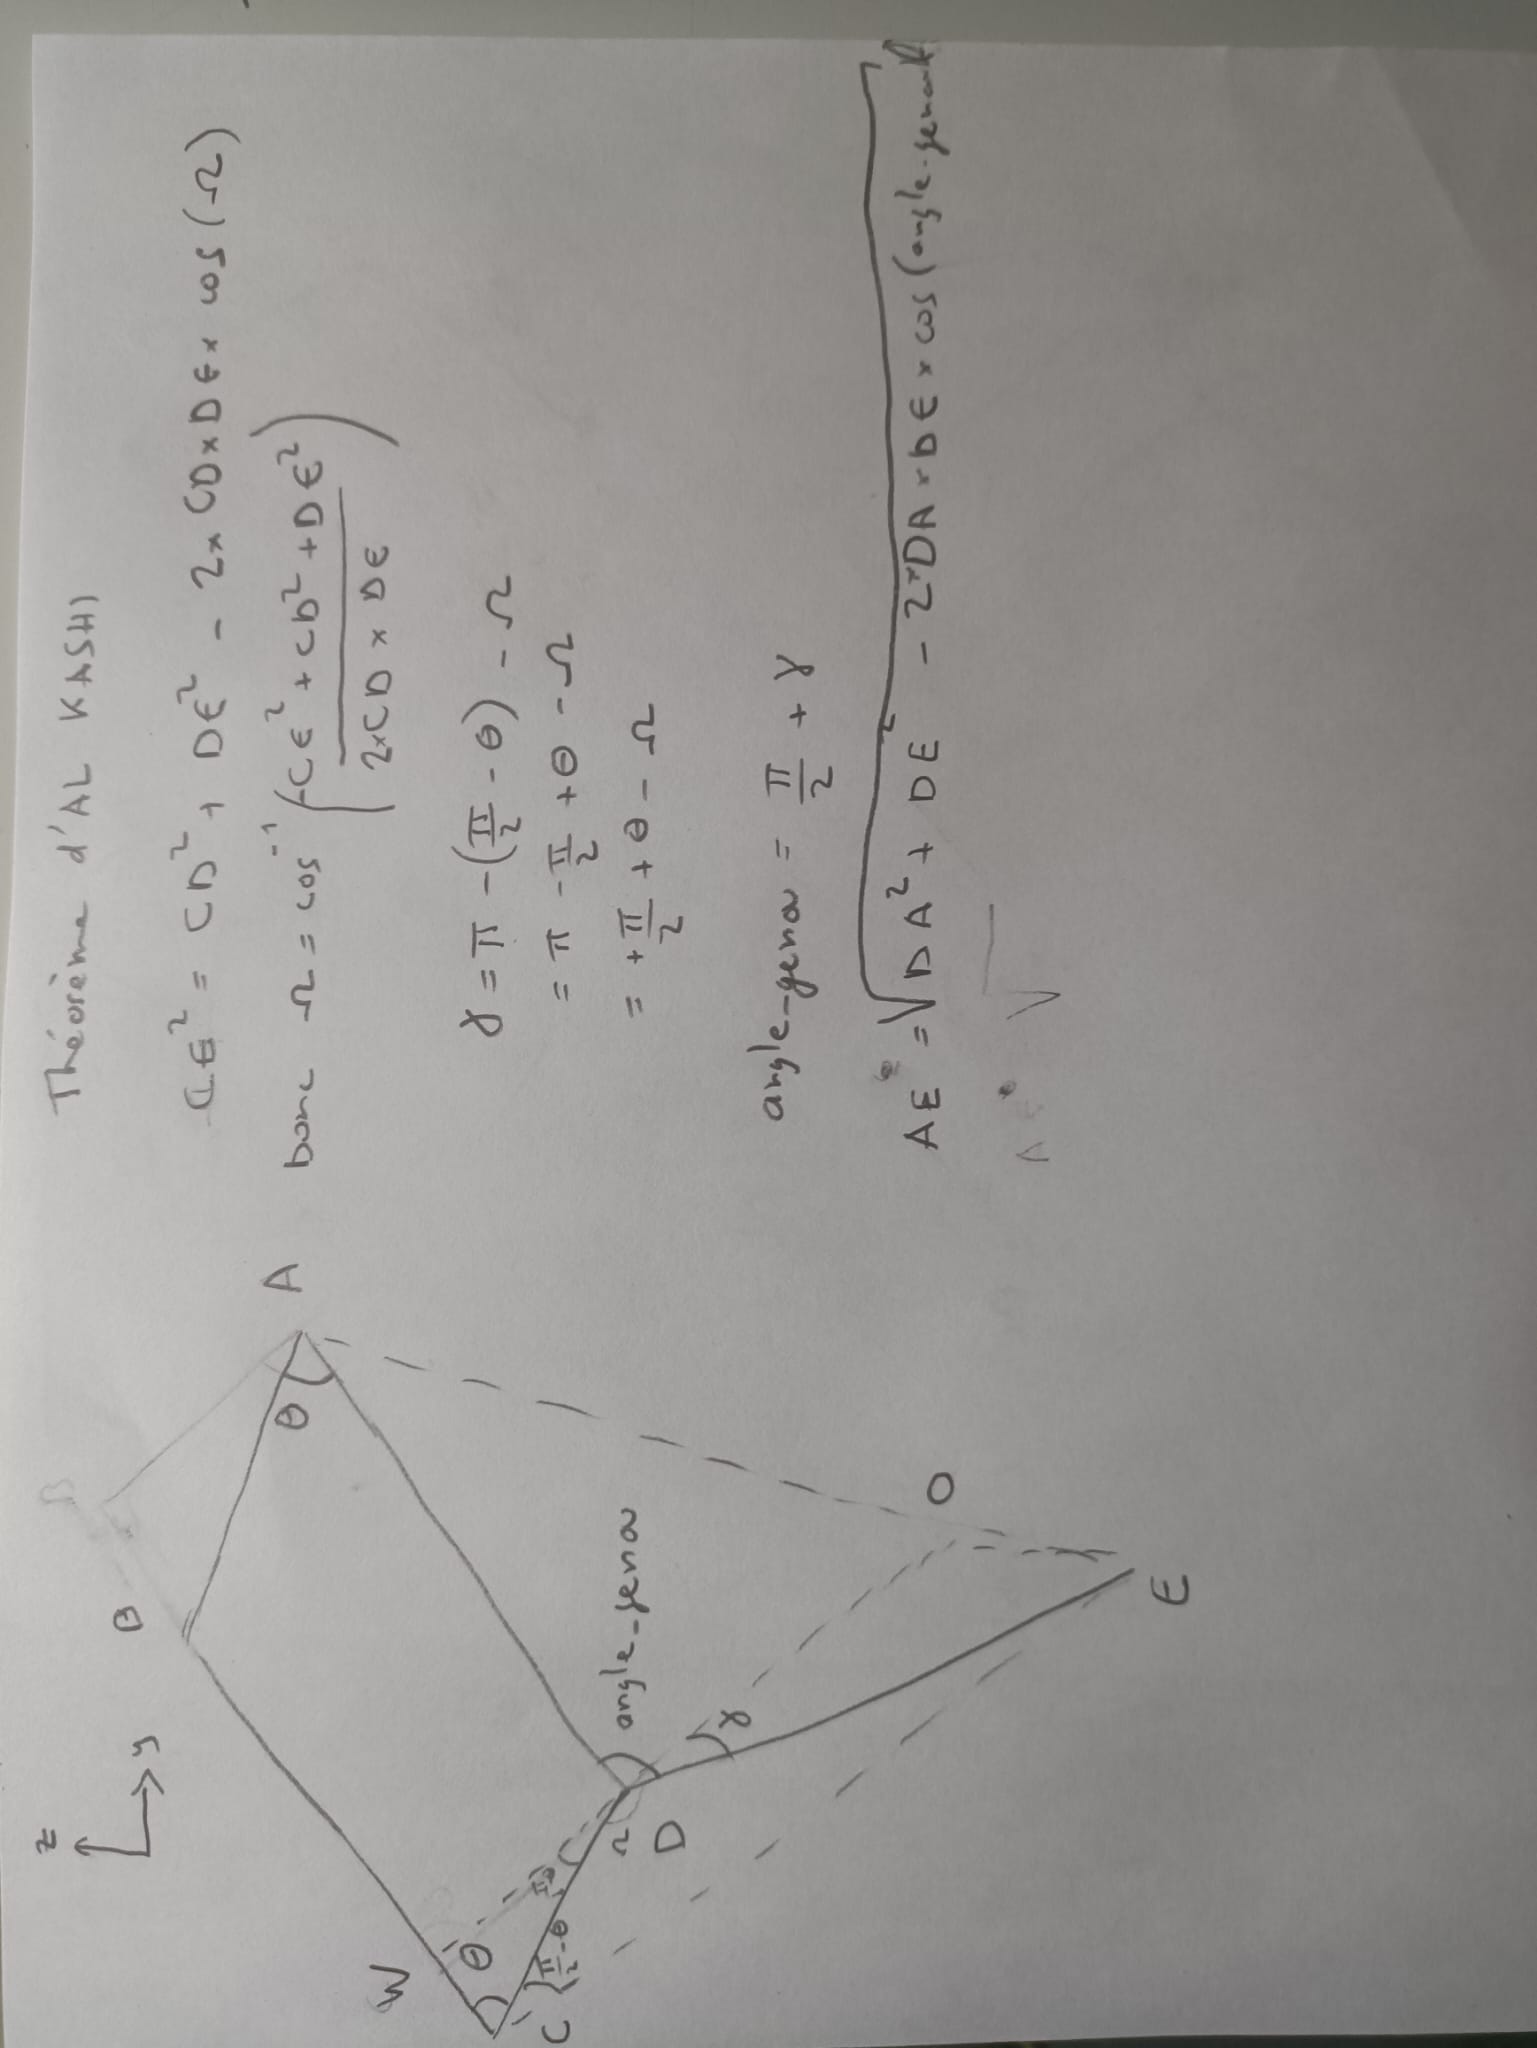 z
y
B
B
A
θ
W
θ'
C
π/2 - θ
Ω
D
angle_genou
γ
O
E
Théorème d'AL KASHI
CE² = CD² + DE² - 2× CD×DE× cos(Ω)
Donc Ω = cos⁻¹ (-CE² + CD² + DE² / 2×CD × DE)
γ = π - (π/2 - θ) - Ω
= π - π/2 + θ - Ω
= + π/2 + θ - Ω
angle-genou = π/2 + γ
AE = √DA² + DE² - 2×DA×DE× cos(angle-genou)
A √